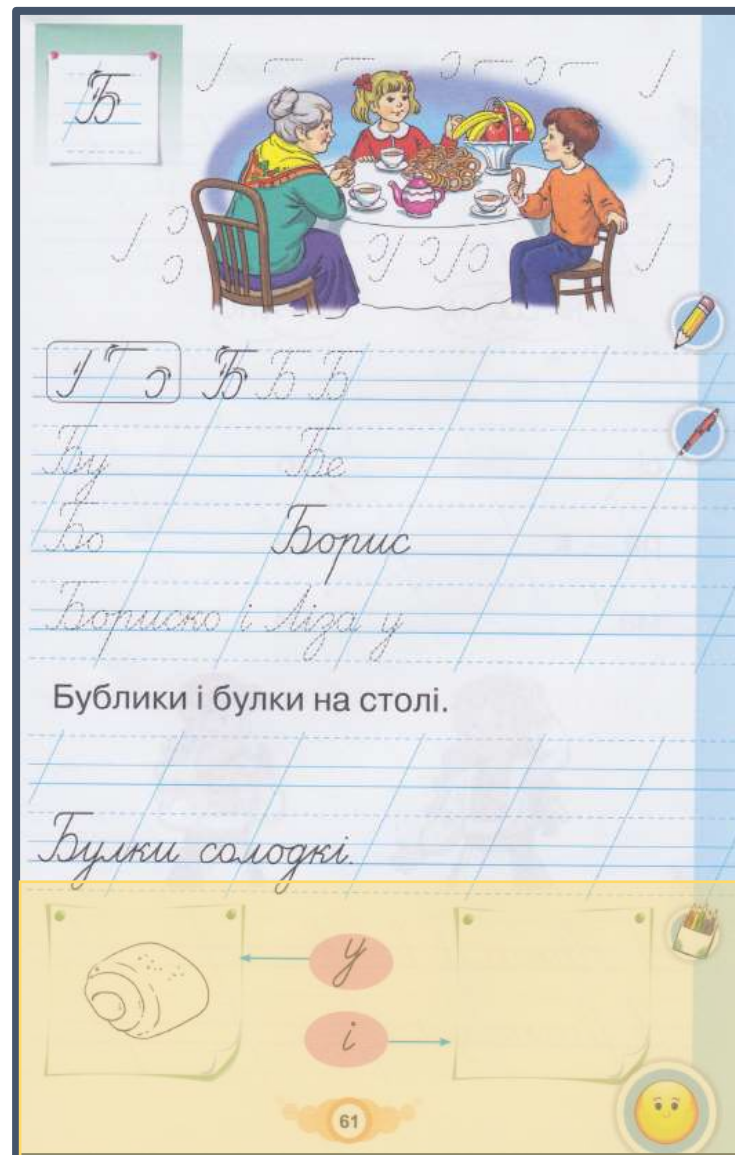 Б
Б Б Б
Бу Бе
Бо Борис
Бориско і Ліза у
Бублики і булки на столі.
Булки солодкі.
у
і
61